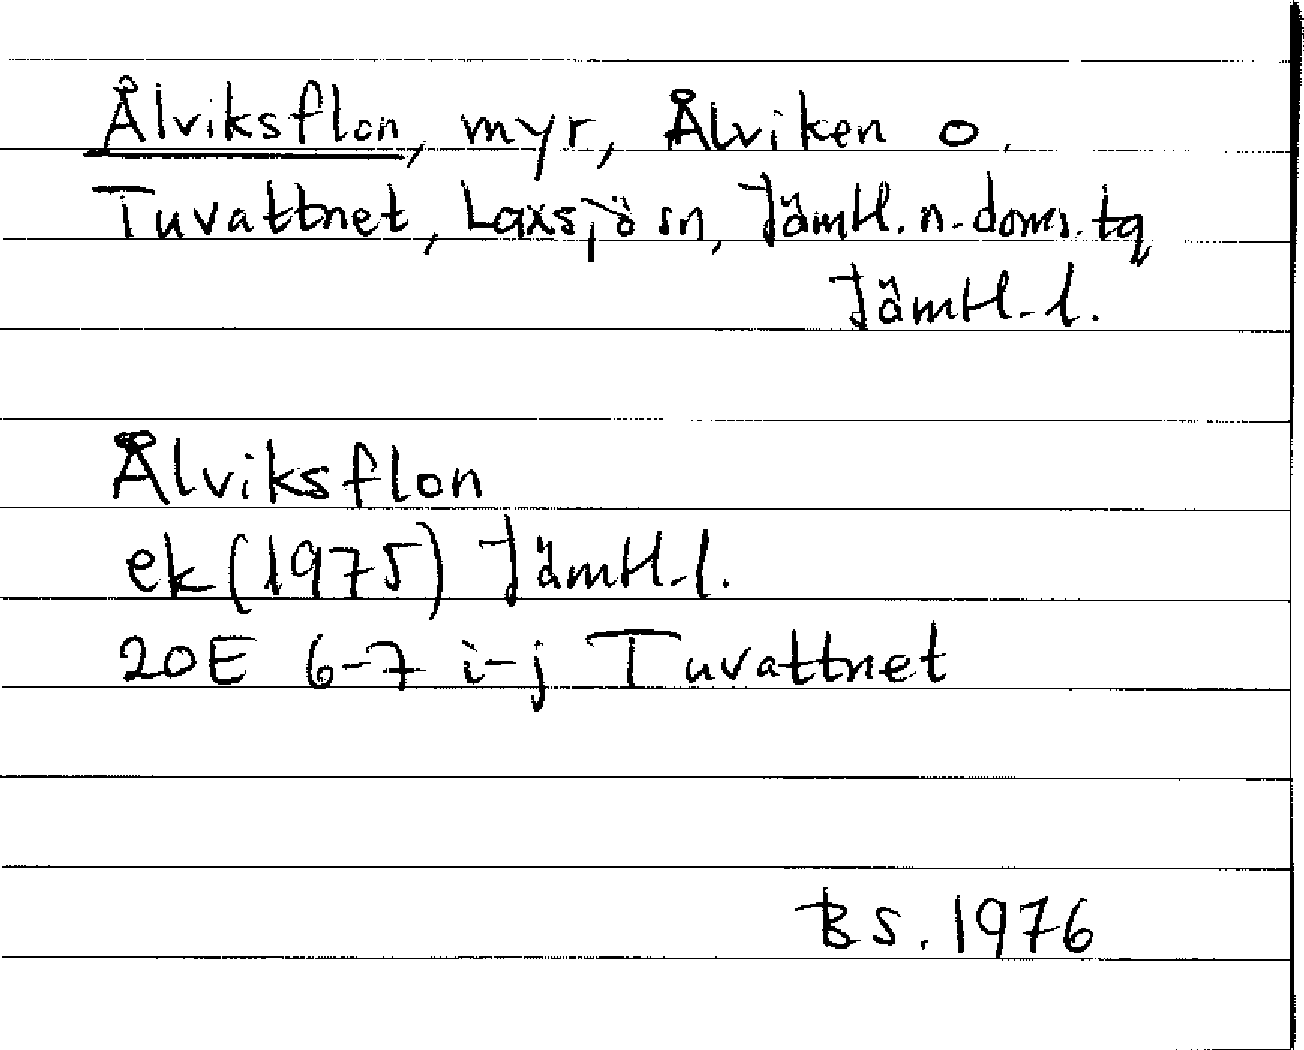 Ålviksflon, myr, Ålviken o.
Tuvattnet, Laxsjö sn, Jämtl. n. doms. tg
Jämtl. l.
Ålviksflon
ek (1975) Jämtl. l.
20E 6-7 i-j Tuvattnet
BS. 1976